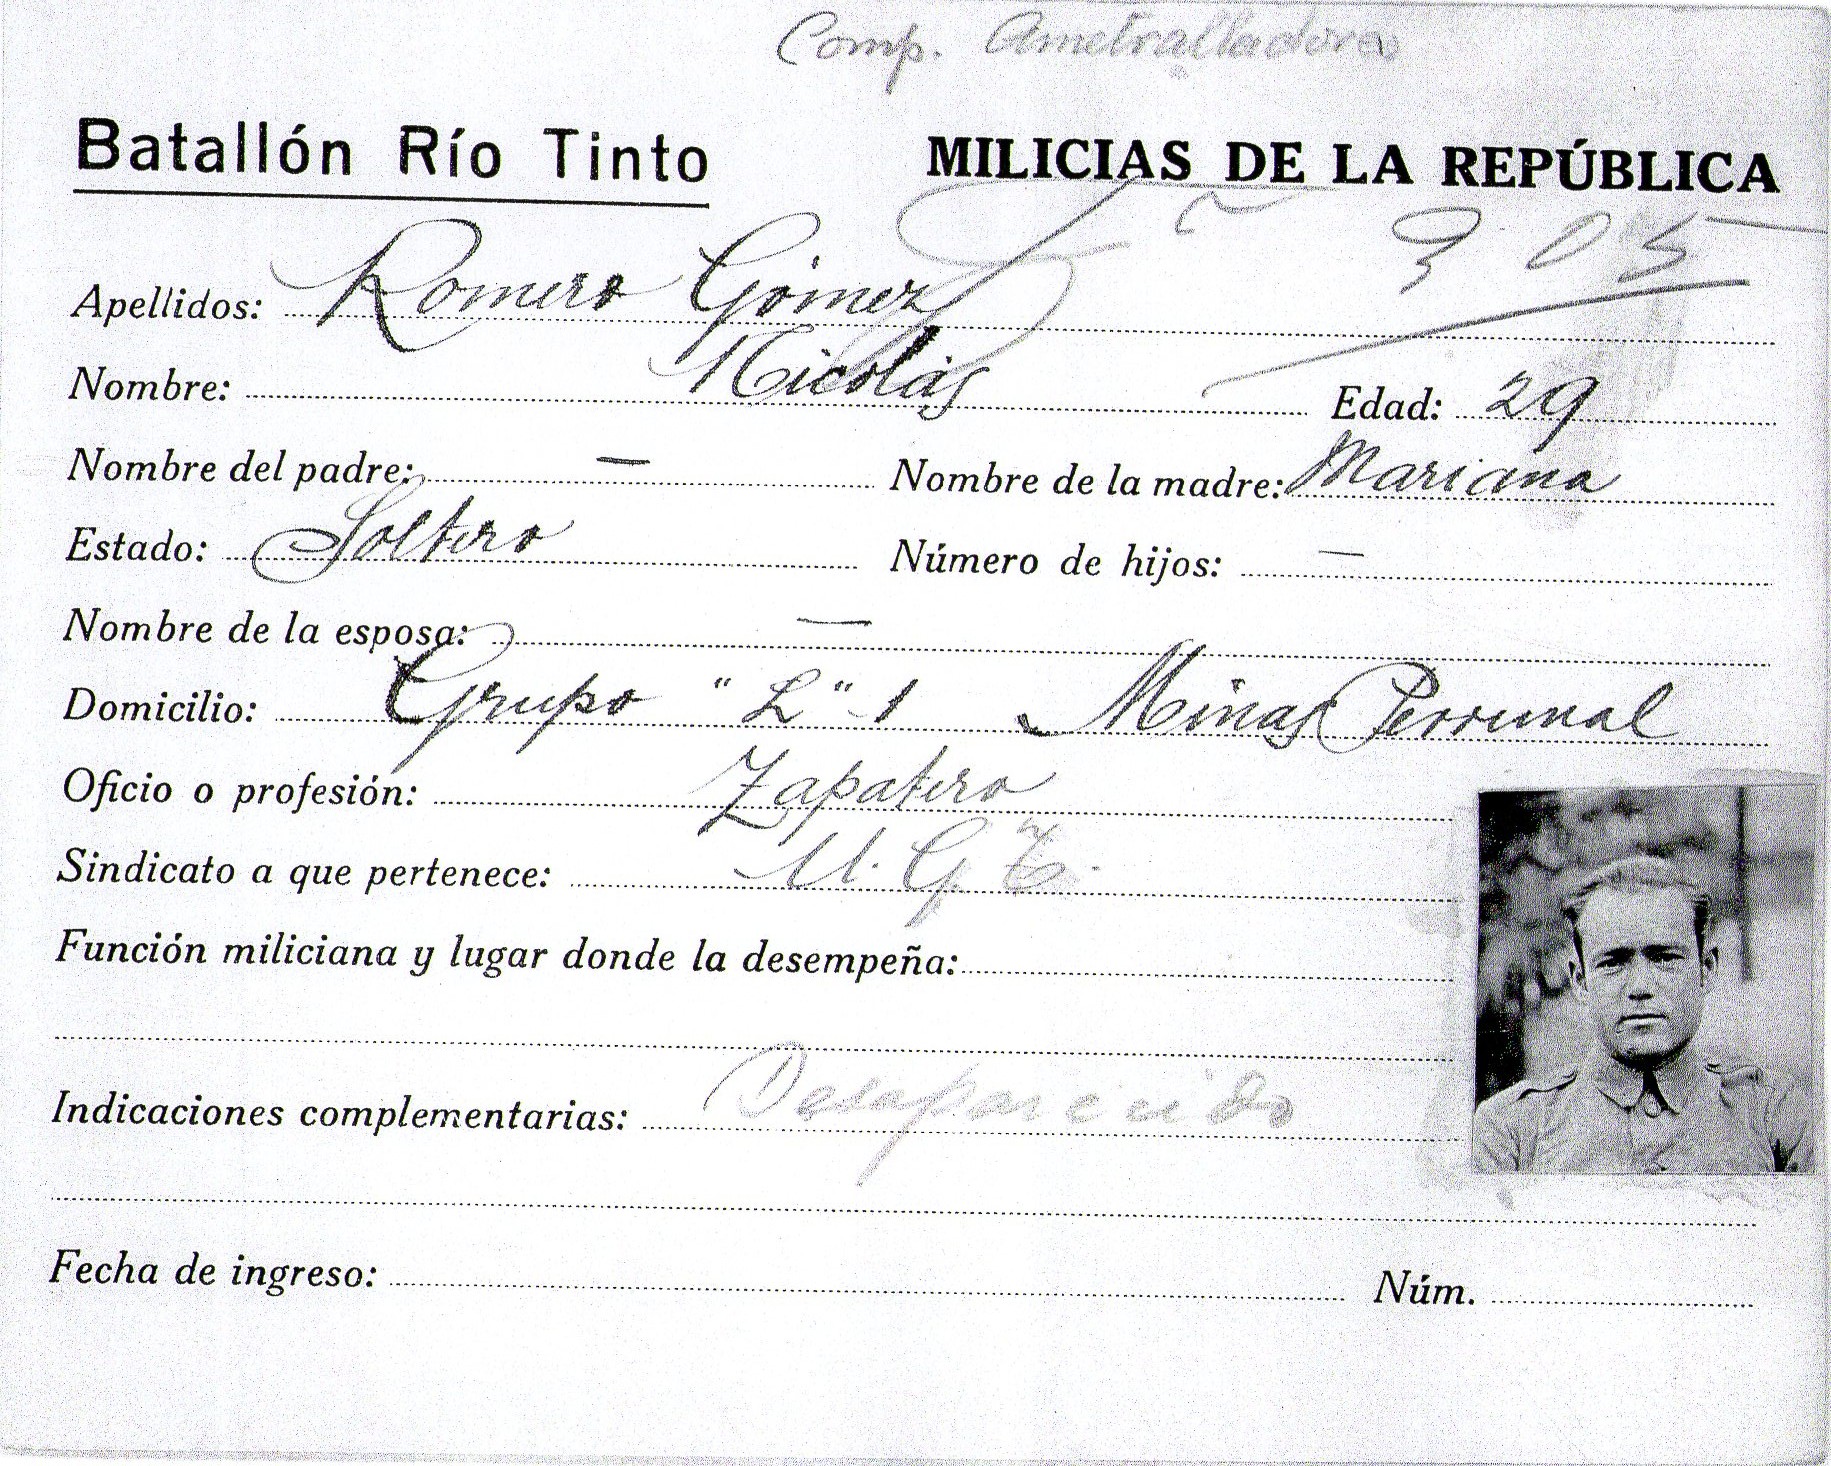 Comp. Ametralladoras
Batallón Río Tinto
MILICIAS DE LA REPÚBLICA
905
Apellidos: Romero Gómez
Nombre: Nicolás Edad: 29
Nombre del padre: — Nombre de la madre: Mariana
Estado: Soltero Número de hijos: —
Nombre de la esposa: —
Domicilio: Grupo "L" - 1 Minas Perrunal
Oficio o profesión: Zapatero
Sindicato a que pertenece: U. G. T.
Función miliciana y lugar donde la desempeña:
Indicaciones complementarias: Desaparecido
Fecha de ingreso: Núm.